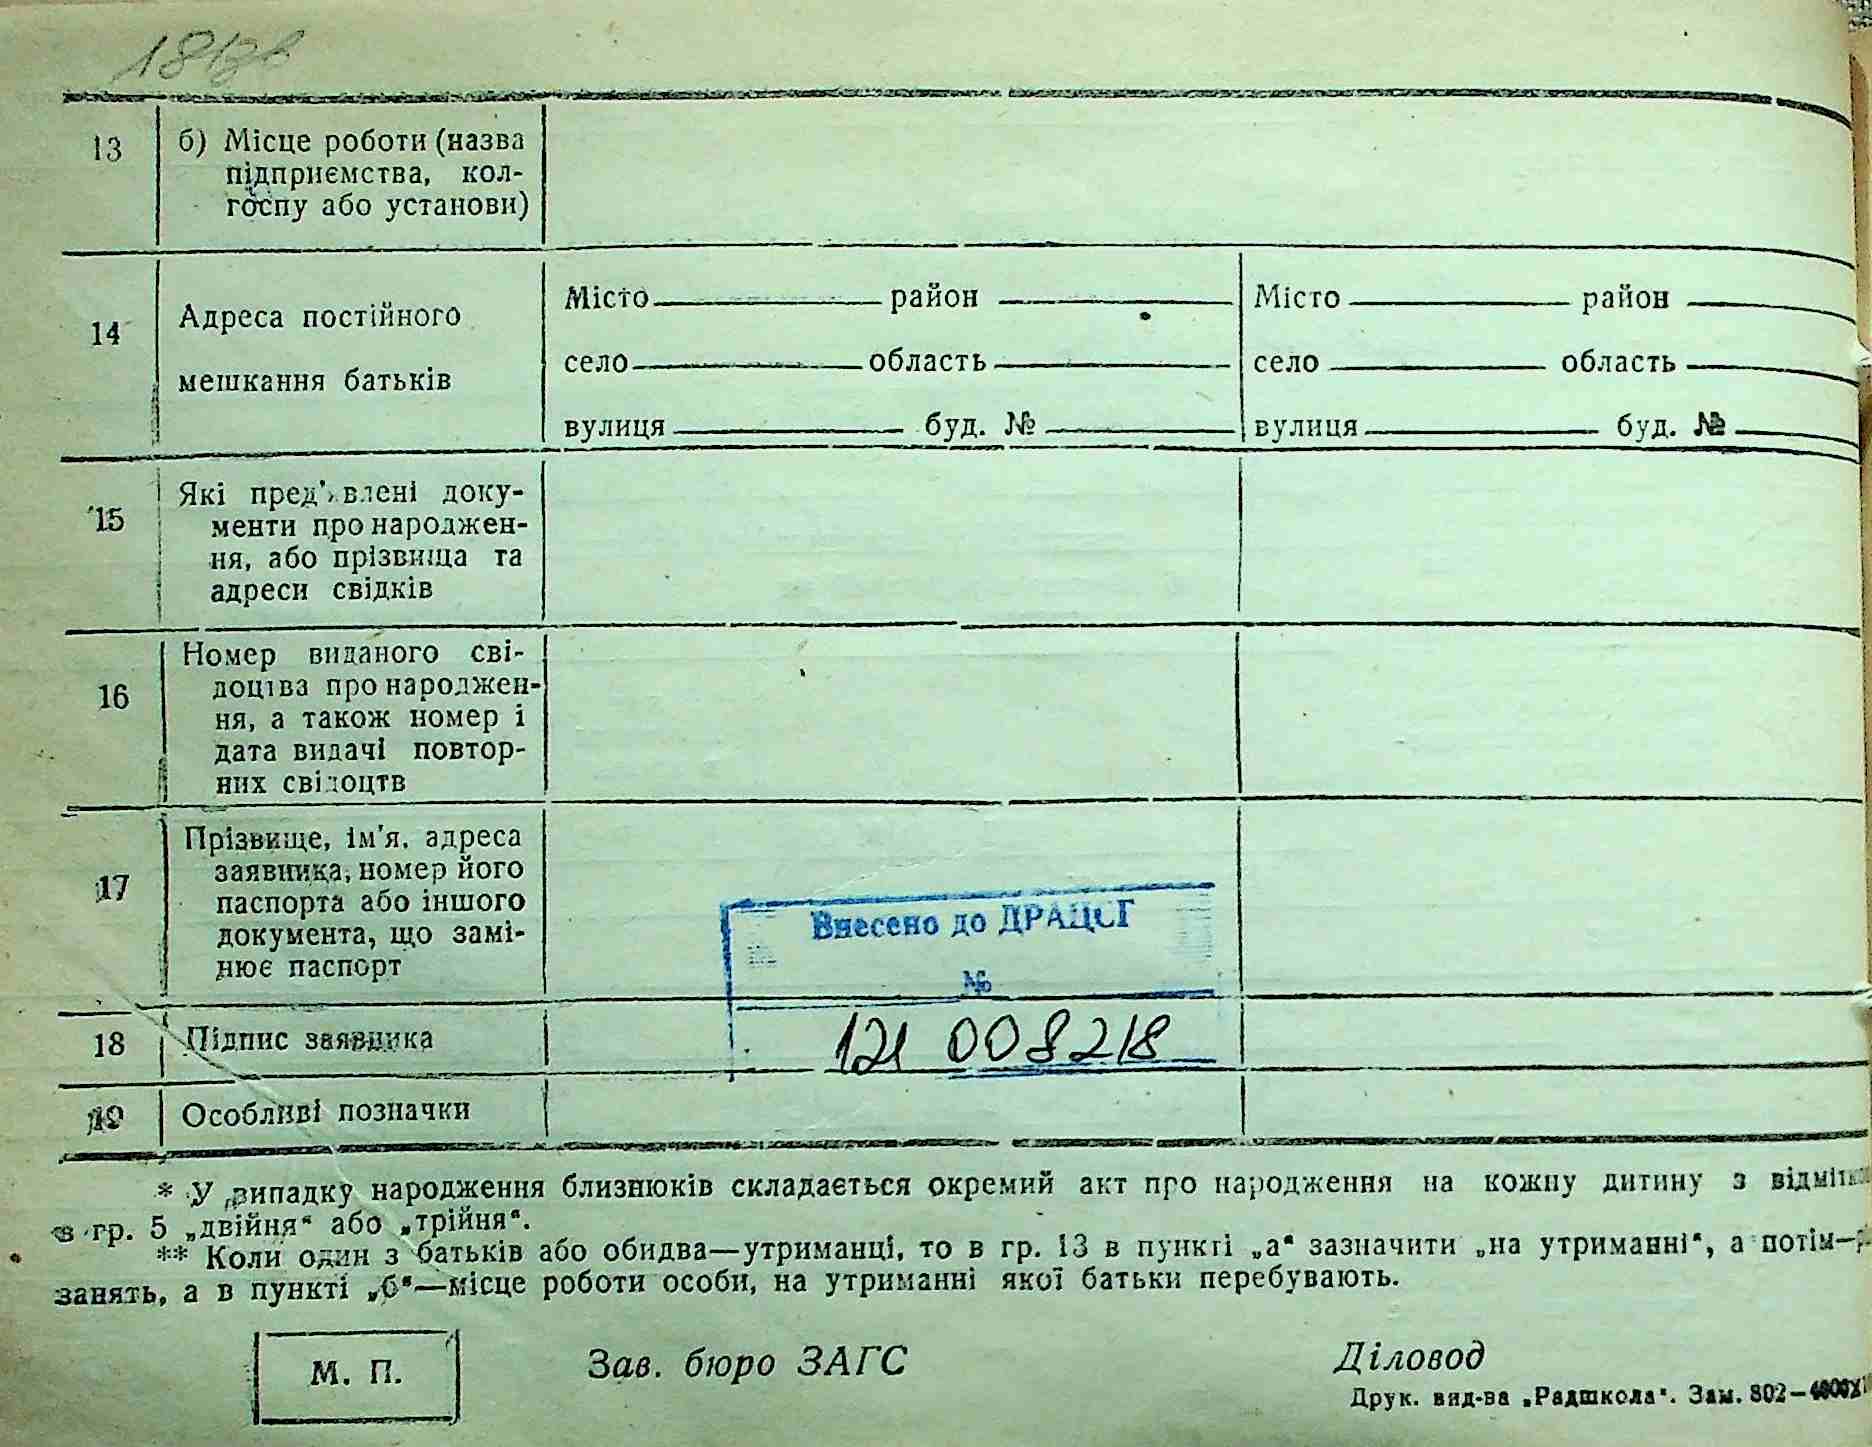 18 зв
13 б) Місце роботи (назва
підприємства, кол-
госпу або установи)
14 Адреса постійного
мешкання батьків
Місто район Місто район
село область село область
вулиця буд. № вулиця буд. №
15 Які пред'явлені доку-
менти про народжен-
ня, або прізвища та
адреси свідків
16 Номер виданого сві-
доцтва про народжен-
ня, а також номер і
дата видачі повтор-
них свідоцтв
17 Прізвище, ім'я, адреса
заявника, номер його
паспорта або іншого
документа, що замі-
нює паспорт
Внесено до ДРАЦСГ
№
121 008218
18 Підпис заявника
19 Особливі позначки
* У випадку народження близнюків складається окремий акт про народження на кожну дитину з
в гр. 5 „двійня“ або „трійня“.
** Коли один з батьків або обидва—утриманці, то в гр. 13 в пункті „а“ зазначити „на утриманні“, а потім—
занять, а в пункті „б“—місце роботи особи, на утриманні якої батьки перебувають.
М. П. Зав. бюро ЗАГС Діловод
Друк. вид-ва „Радшкола“. Зам. 802—